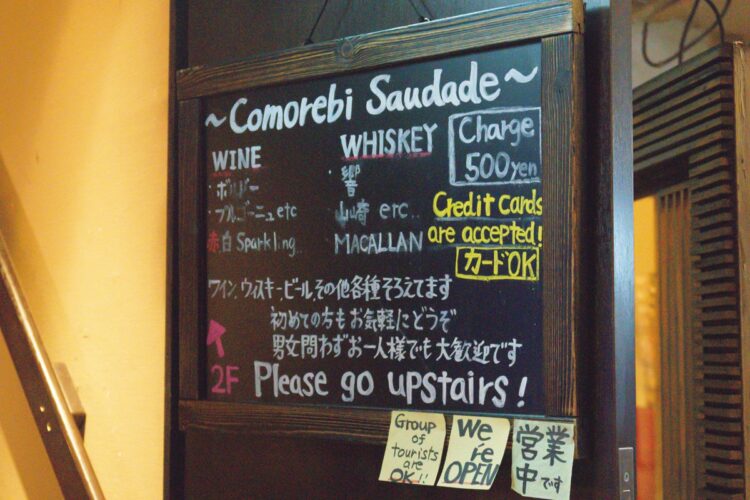 ~Comorebi Saudade~
WINE
・ボルドー
・ブルゴーニュetc
赤,白 Sparkling..
WHISKEY
・響
山崎 erc..
MACALLAN
Charge
500yen
Credit cards
are accepted!
カードOK
ワイン、ウィスキー、ビール、その他各種そろえてます
初めての方もお気軽にどうぞ
男女問わずお一人様でも大歓迎です
2F Please go upstairs!
Group
of
tourists
are
OK!!
We
're
OPEN
営業
中です